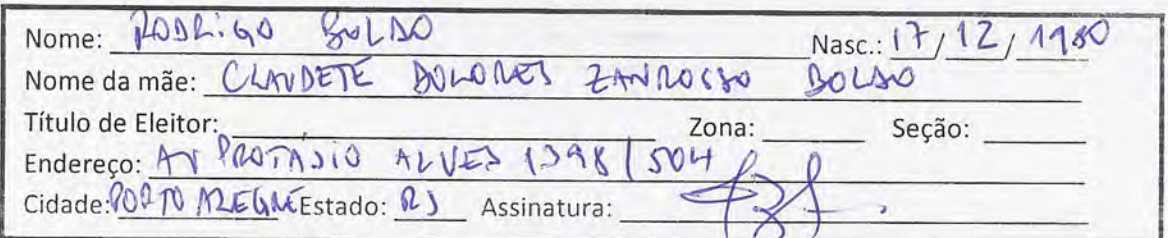 Nome: RODRIGO BOLDO Nasc.: 17/12/1980
Nome da mãe: CLAUDETE DOLORES ZANROSSO BOLDO
Título de Eleitor: Zona: Seção:
Endereço: AV PROTÁSIO ALVES 1398/504
Cidade: PORTO ALEGRE Estado: RS Assinatura: